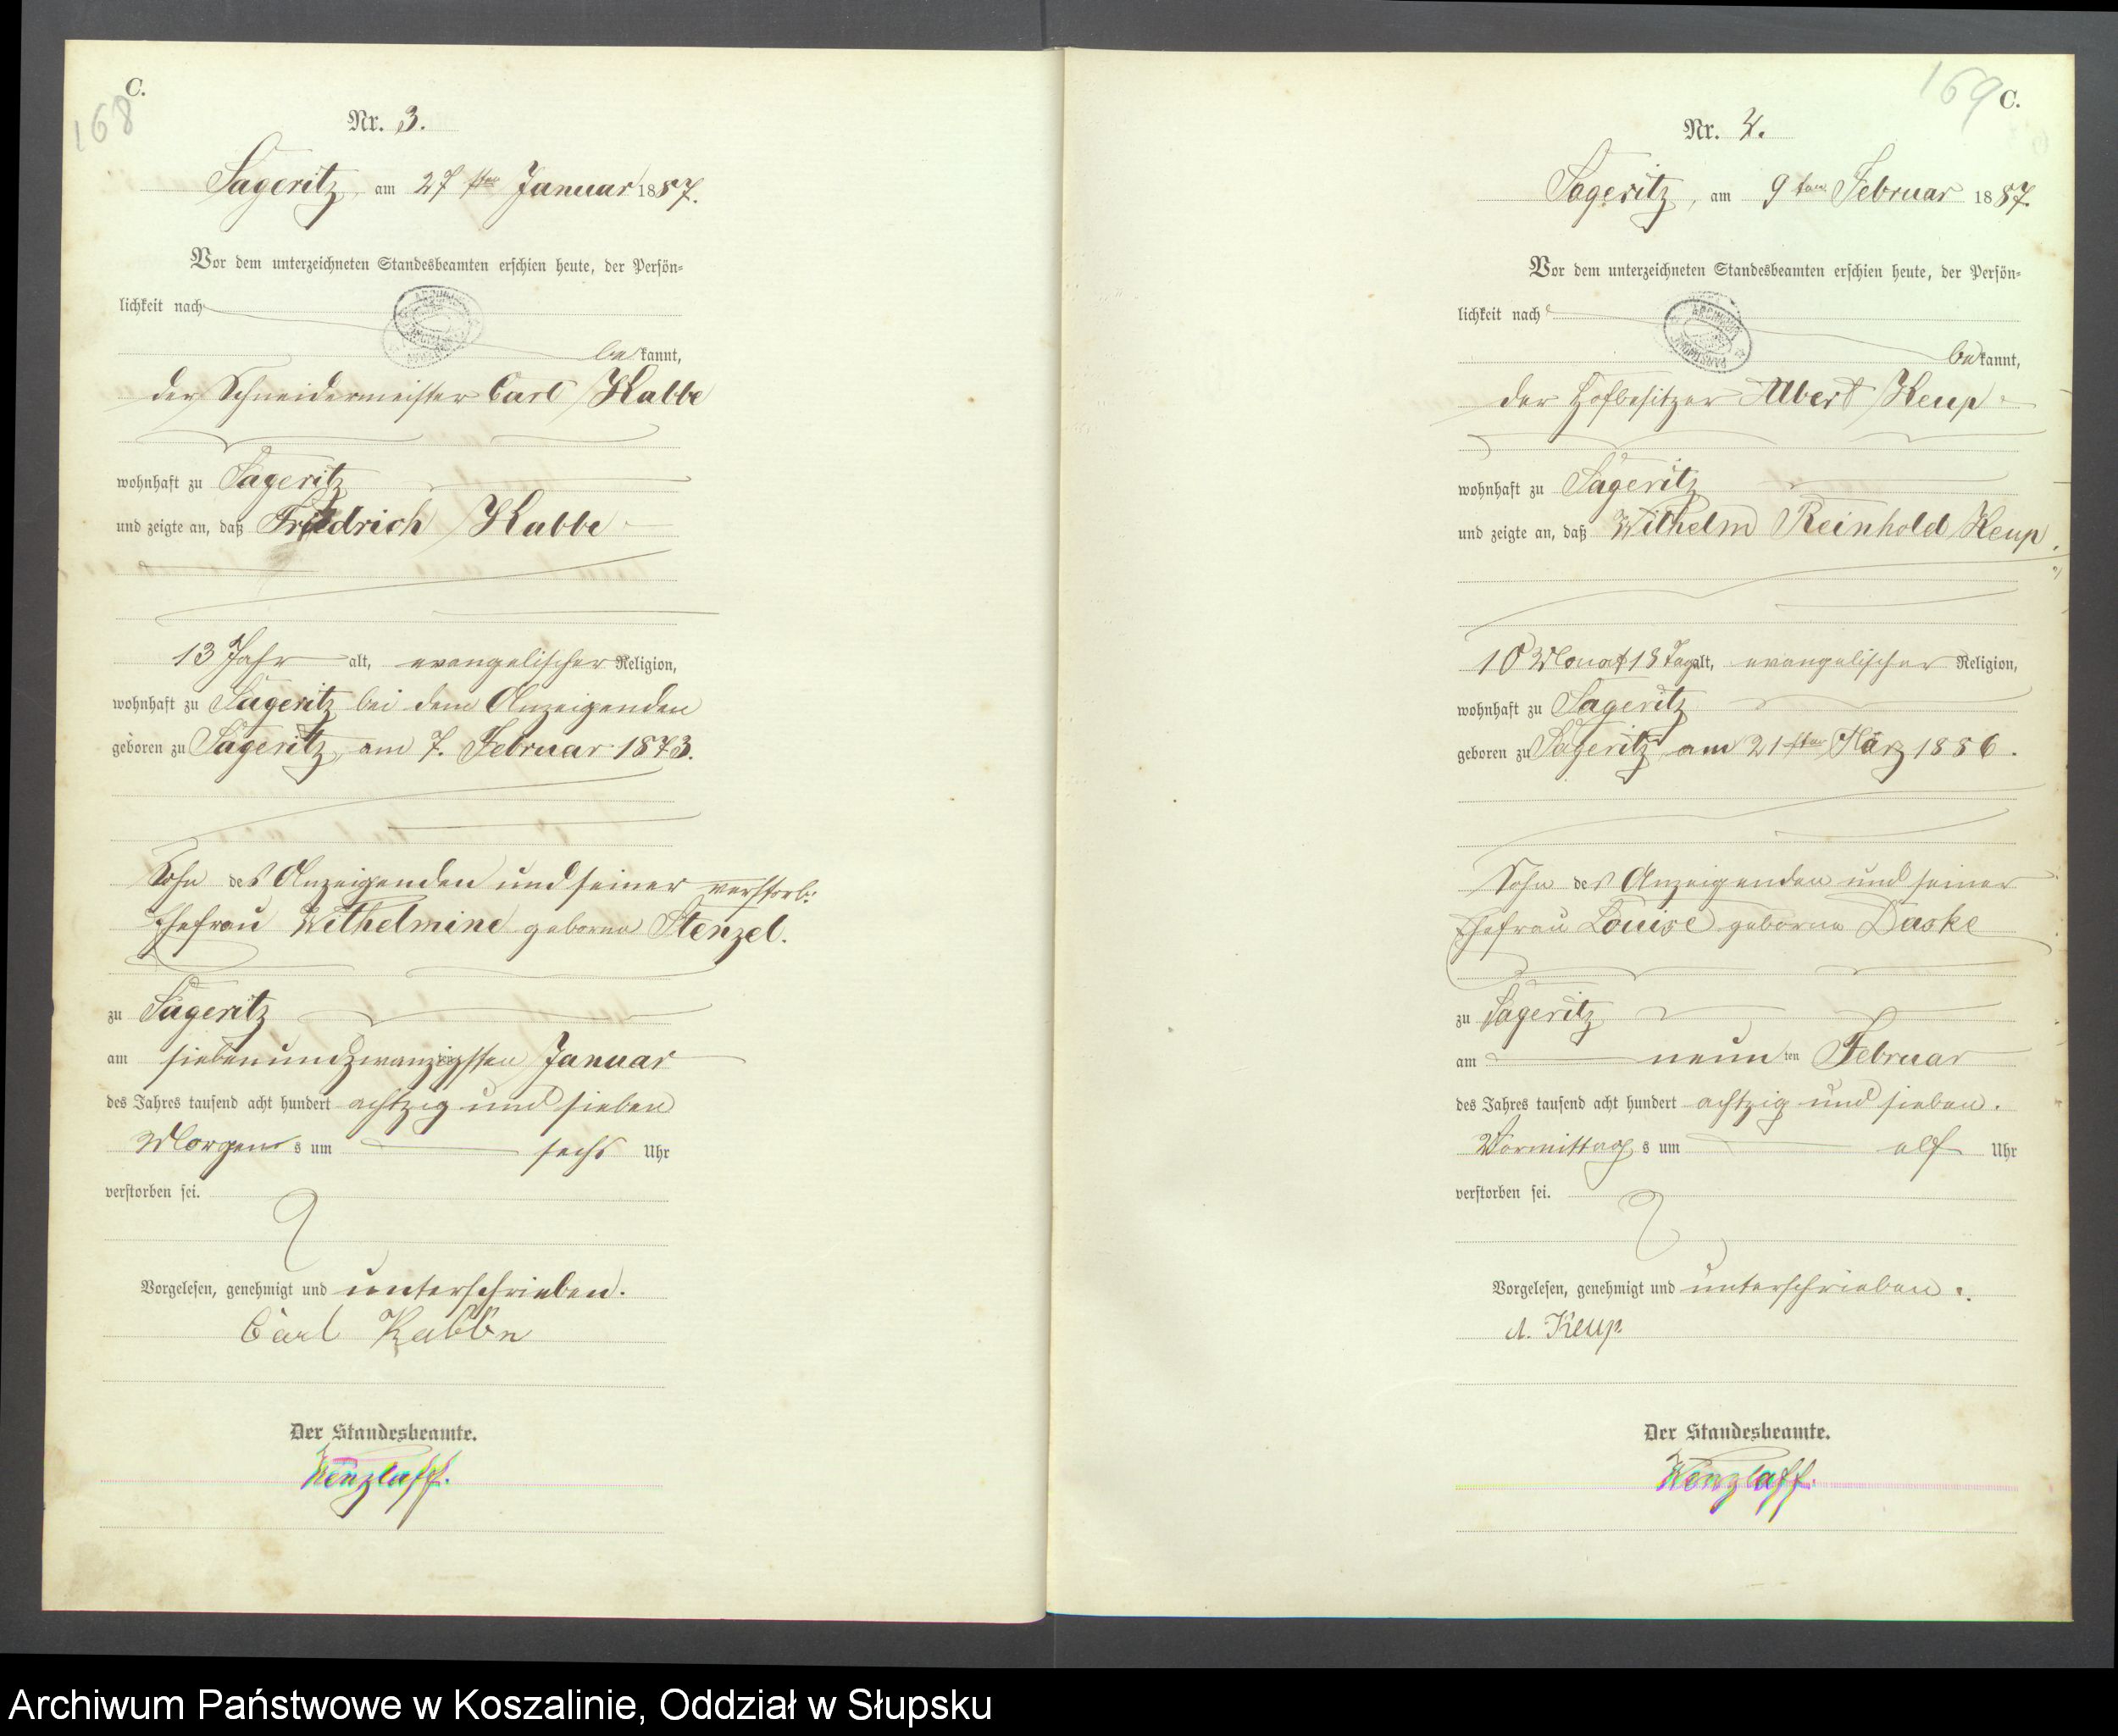 C.
168
Nr. 3.
Sageritz, am 27sten Januar 1887.
Vor dem unterzeichneten Standesbeamten erschien heute, der Persön-
lichkeit nach
bekannt,
der Schneidermeister Carl Kabbe
wohnhaft zu Sageritz
und zeigte an, daß Friedrich Kabbe
13 Jahr alt, evangelischer Religion,
wohnhaft zu Sageritz bei dem Anzeigenden
geboren zu Sageritz, am 7. Februar 1873.
Sohn des Anzeigenden und seiner verstorb:
Ehefrau Wilhelmine geborne Stenzel.
zu Sageritz
am siebenundzwanzigsten Januar
des Jahres tausend acht hundert achtzig und sieben
Morgens um sechs Uhr
verstorben sei.
Vorgelesen, genehmigt und unterschrieben.
Carl Kabbe
Der Standesbeamte.
Wenzlaff.
169 C.
Nr. 4.
Sageritz, am 9ten Februar 1887.
Vor dem unterzeichneten Standesbeamten erschien heute, der Persön-
lichkeit nach
bekannt,
der Hofbesitzer Albert Keup
wohnhaft zu Sageritz
und zeigte an, daß Wilhelm Reinhold Keup
10 Monat 18 Tag alt, evangelischer Religion,
wohnhaft zu Sageritz
geboren zu Sageritz, am 21sten März 1886.
Sohn des Anzeigenden und seiner
Ehefrau Louise geborne Daske
zu Sageritz
am neunten Februar
des Jahres tausend acht hundert achtzig und sieben.
Vormittags um elf Uhr
verstorben sei.
Vorgelesen, genehmigt und unterschrieben.
A. Keup.
Der Standesbeamte.
Wenzlaff.
Archiwum Państwowe w Koszalinie, Oddział w Słupsku